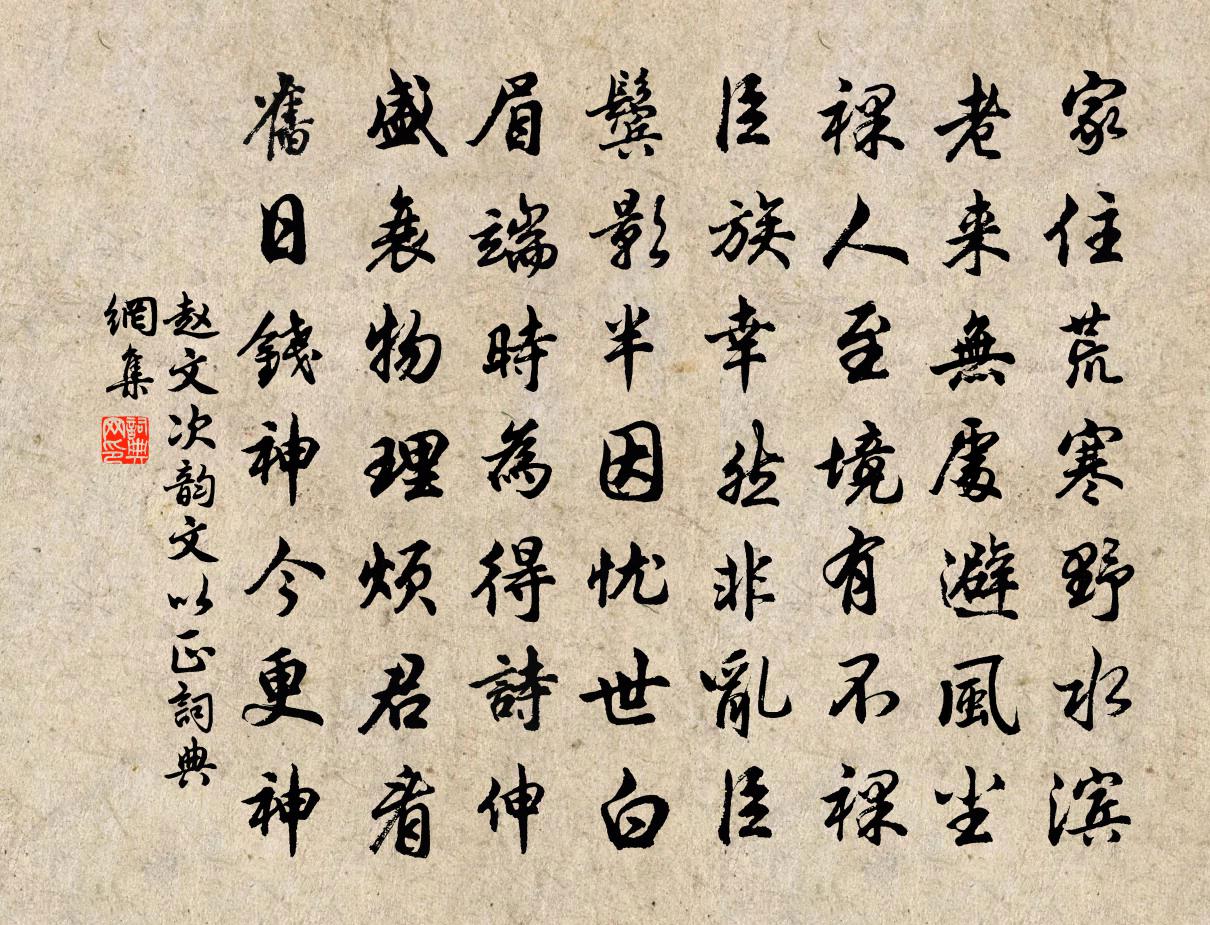 家住荒寒野水滨
老来無處避風尘
裸人至境有不裸
臣族幸然非亂臣
鬓影半因忧世白
眉端時為得詩伸
盛衰物理烦君看
舊日錢神今更神
赵文次韵文以正詞典
網集
詞典網印